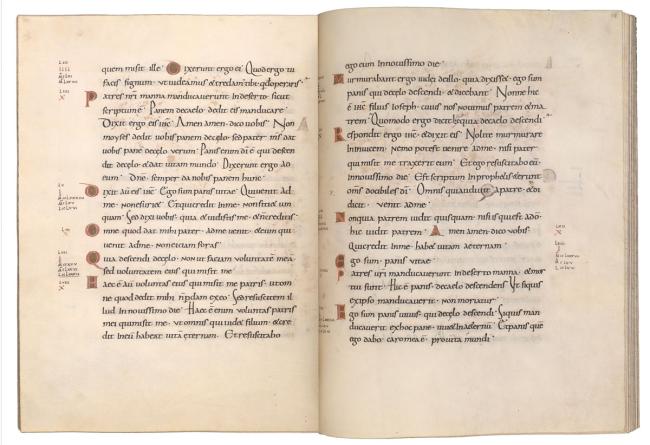 quem misit ille Dixerunt ergo ei Quod ergo tu
facis signum ut uideamus & credamus tibi quid operaris
Patres nri manna manducauerunt in deserto sicut
scriptum ē Panem decaelo dedit eis manducare
Dixit ergo eis ihc Amen amen dico uobis Non
moyses dedit uobis panem decęlo sed pater ms dat
uobis panē decęlo uerum Panis enim di ē qui descen
dit decęlo & dat uitam mundo Dixerunt ergo ad
eum Dne semper da nobis panem hunc
Dixit aū eis ihc Ego sum panis uitae Qui uenit ad
me non esuri& Et qui credit inme non siti& um
quam Sed dixi uobis quia & uidistis me & n credistis
Omne quod dat mihi pater adme ueni& & eum qui
uenit adme non eiciam foras
Quia descendi decęlo non ut faciam uoluntatē meā
sed uoluntatem eius qui misit me
Haec ē aū uoluntas eius qui misit me patris ut om
ne quod dedit mihi n pdam ex eo Sed resuscitem il
lud innouissimo die Haec ē enim uoluntas patris
mei qui misit me ut omnis qui uid& filium & cre
dit ineū habeat uitā ęternam Et resuscitabo
ego eum innouissimo die
Murmurabant ergo iudei deillo quia dixiss& ego sum
panis qui decęlo descendi & dicebant Nonne hic
ē ihc filius ioseph cuius nos nouimus patrem & ma
trem Quomodo ergo dicit hic quia decaelo descendi
Respondit ergo ihc & dixit eis Nolite murmurare
inInuicem Nemo potest uenire adme nisi pater
qui misit me traxerit eum Et ego resuscitabo eū
innouissimo die Est scriptum inproph&is & erunt
oms docibiles di Omnis qui audiuit apatre & di
dicit uenit adme
Non quia patrem uidit quisquam nisi is qui est ado
hic uidit patrem Amen amen dico uobis
Qui credit inme hab& uitam aeternam
Ego sum panis uitae
Patres uri manducauerunt indeserto manna & mor
tui sunt Hic ē panis decaelo descendens Ut siquis
ex ipso manducauerit non moriatur
Ego sum panis uiuus qui decęlo descendi Siquis man
ducauerit exhoc pane uiu& inaeternū Et panis quē
ego dabo caro mea ē pro uita mundi